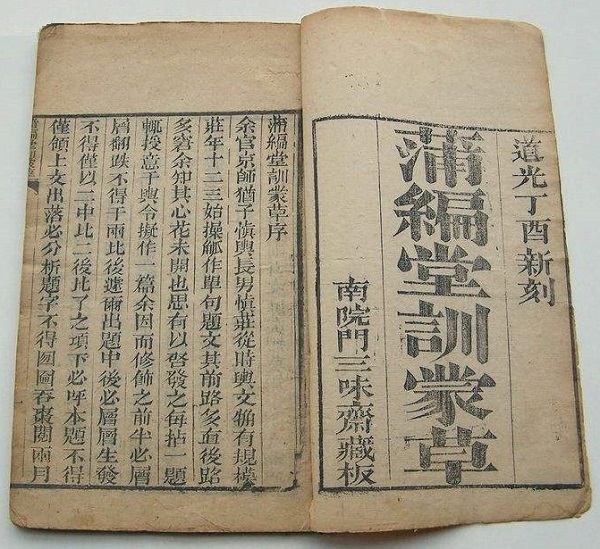 道光丁酉新刻
蒲編堂訓蒙草
南院門三味齋藏板
蒲編堂訓蒙草序
余官京師猶子慎輿長男慎莊從時輿文頗有規模
莊年十二三始操觚作單句題文其前路多直後路
多窘余知其心花未開也思有以啓發之每拈一題
輒授意于輿令擬作一篇余因而修飾之前半必層
層翻跌不得于兩比後遽爾出題中後必層層生發
不得僅以二中比二後比了之項下必呼本題不得
僅領上文出落必分析題字不得囫圇吞棗閱兩月